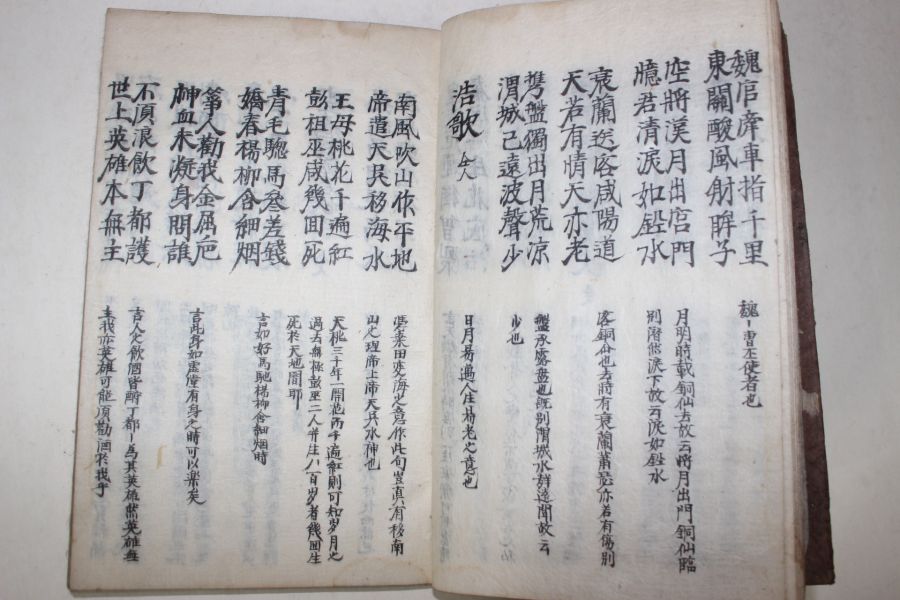 魏官牽車指千里
東關酸風射眸子
空將漢月出宮門
憶君清淚如鉛水
衰蘭送客咸陽道
天若有情天亦老
携盤獨出月荒凉
渭城已遠波聲少
浩歌 仝人
南風吹山作平地
帝遣天吳移海水
王母桃花千遍紅
彭祖巫咸幾回死
青毛驄馬參差錢
嬌春楊柳含細烟
箏人勸我金屈巵
神血未凝身問誰
不須浪飲丁都護
世上英雄本無主
魏曹丕使者也
月明時載銅仙去故云將月出門銅仙臨
別潸然淚下故云淚如鉛水
客銅仙也去時有衰蘭蕭瑟亦若有傷別
盤承露盤也旣別渭城水聲遠聞故云
少也
日月易過人生易老之意也
桑田變海之意作此句豈眞有移南
山之理帝上帝天吳水神也
天桃三千年一開花而千遍紅則可知歲月之
過去無極彭巫二人并生八百歲者幾回生
死於天地間耶
言如好馬馳楊柳含細烟時
言此身如虛僞有身之時可以樂矣
言人之飲個皆酹丁都爲其英雄然英雄無
主我亦英雄可能須勸酒於我乎